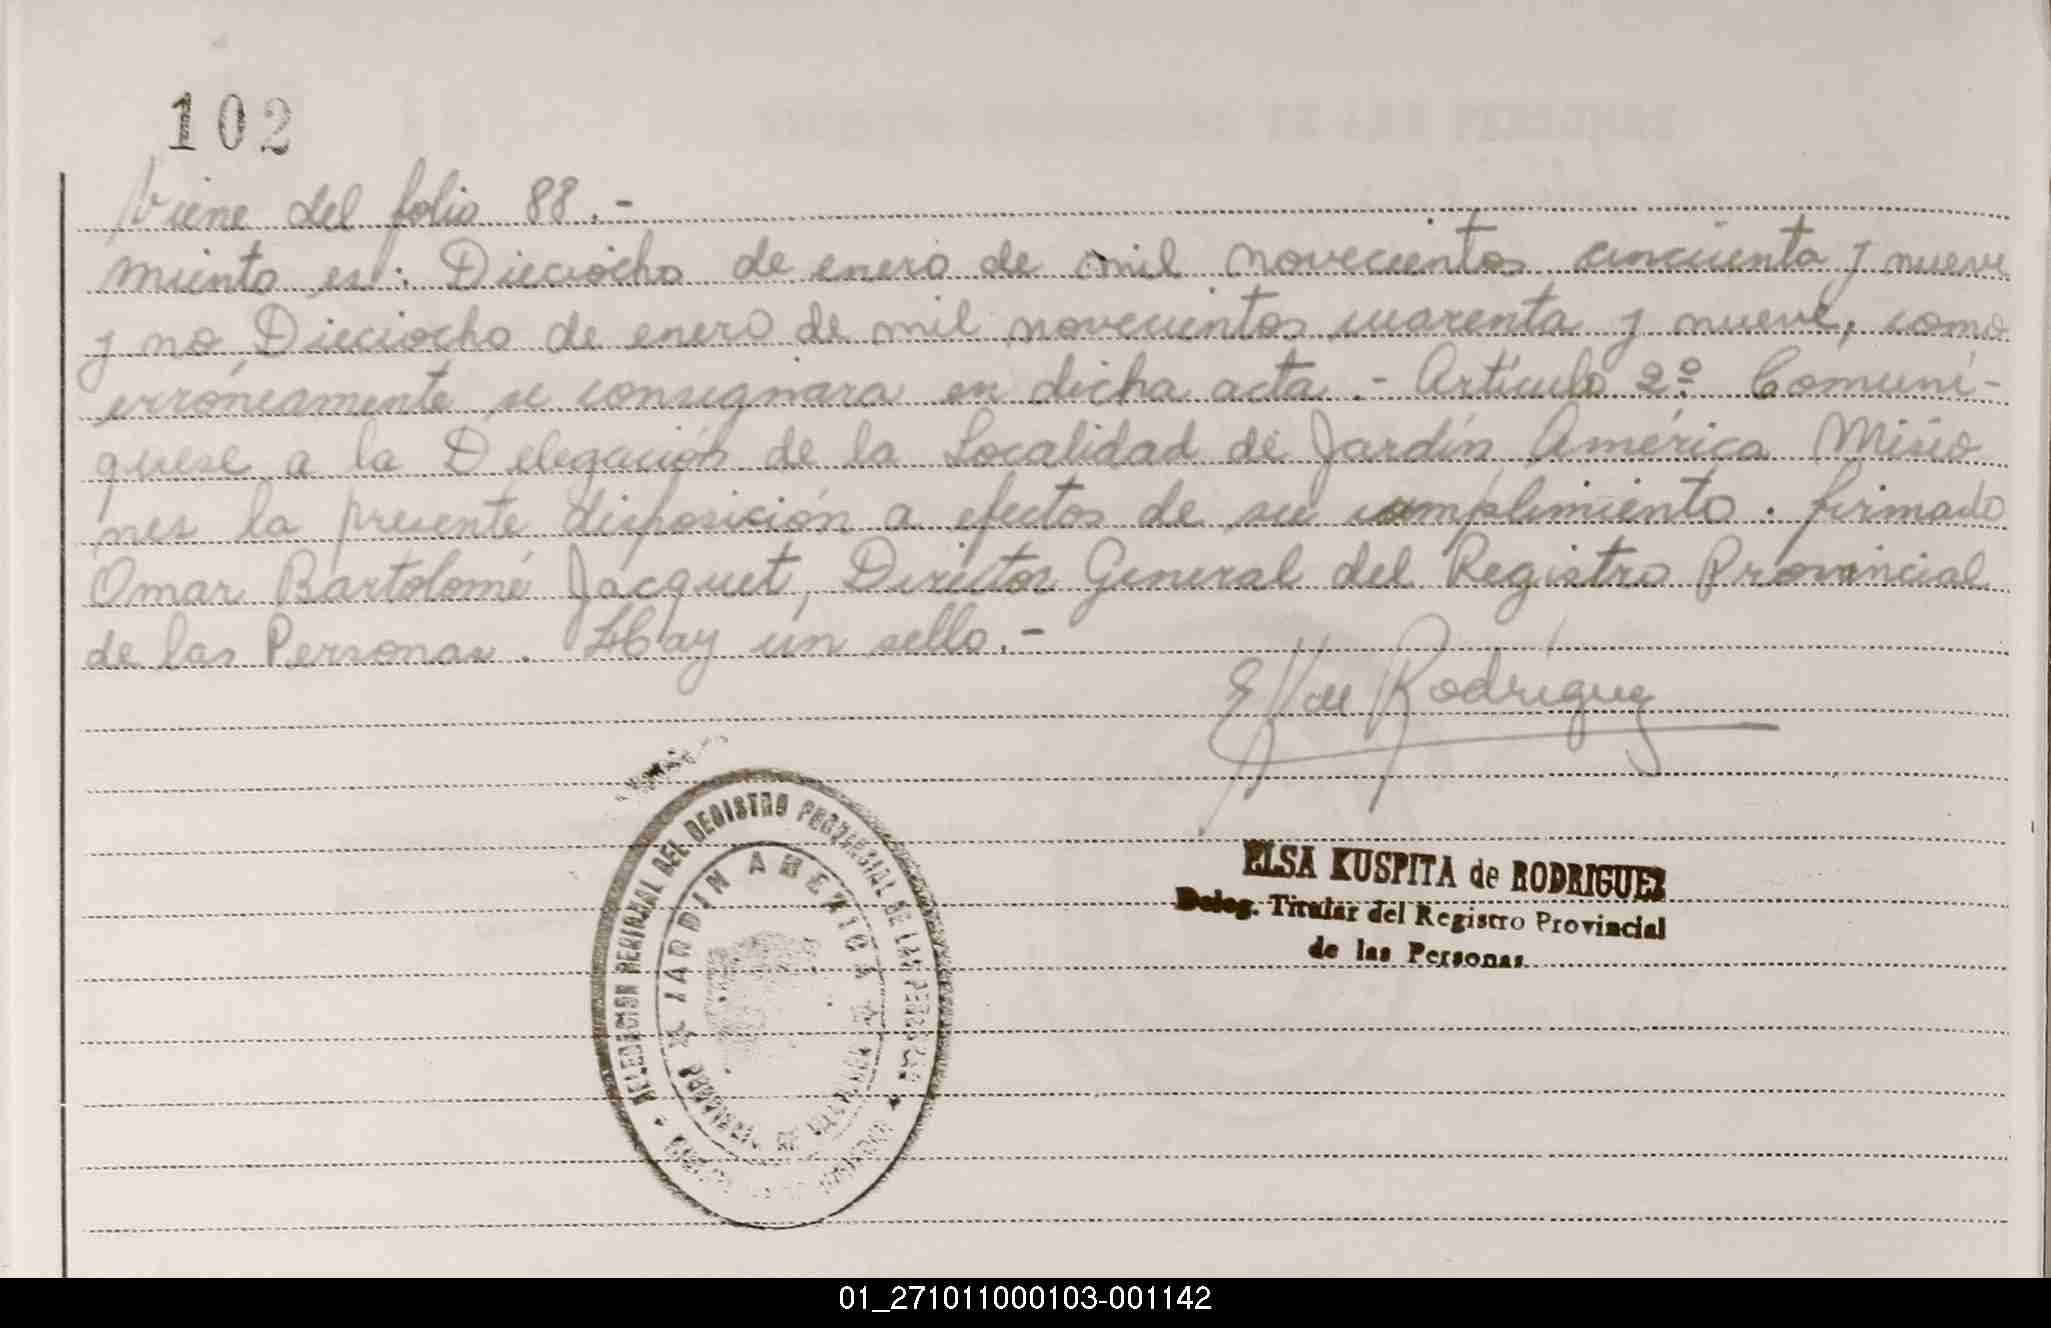 102
Viene del folio 88.-
miento es: Dieciocho de enero de mil novecientos cincuenta y nueve
y no Dieciocho de enero de mil novecientos cuarenta y nueve, como
erróneamente se consignara en dicha acta.- Artículo 2º Comuní-
quese a la Delegación de la Localidad de Jardín América Misio
nes la presente disposición a efectos de su cumplimiento. firmado
Omar Bartolomé Jacquet, Director General del Registro Provincial
de las Personas. Hay un sello.-
E K de Rodríguez
DELEGACION REGIONAL DEL REGISTRO PROVINCIAL DE LAS PERSONAS
JARDIN AMERICA
ELSA KUSPITA de RODRIGUEZ
Deleg. Titular del Registro Provincial
de las Personas
01_271011000103-001142